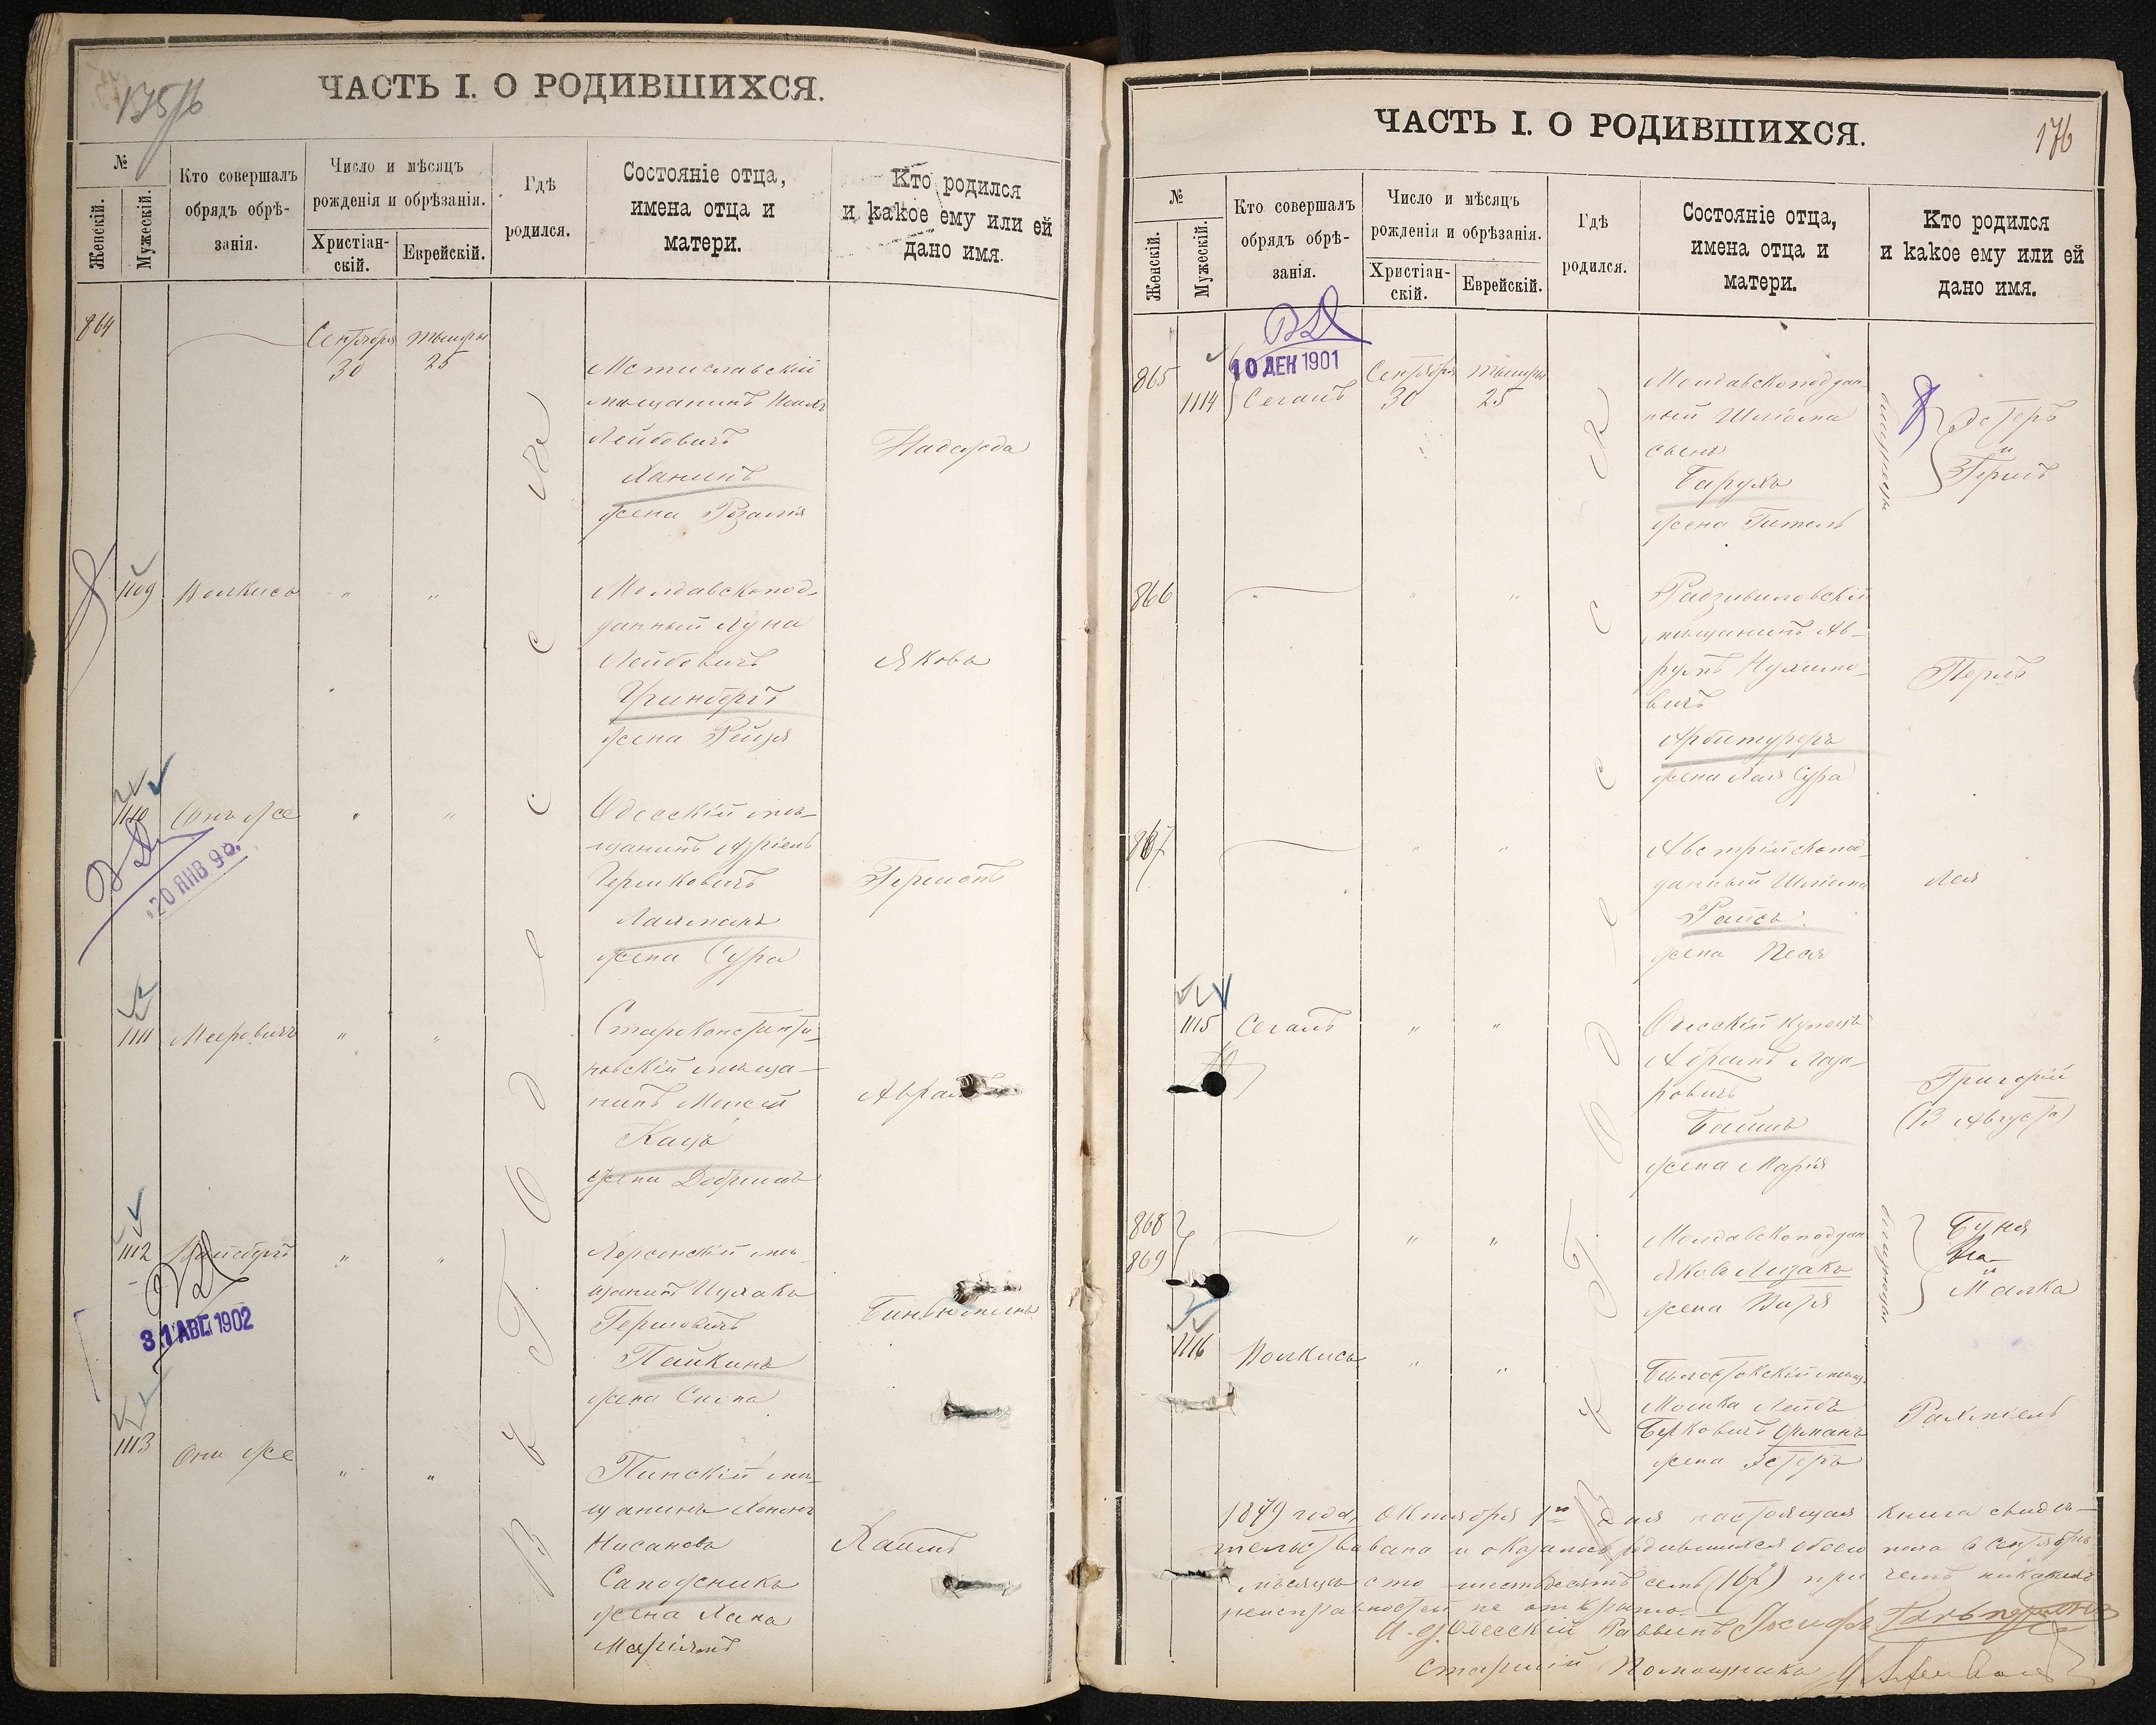 175 об
ЧАСТЬ I. О РОДИВШИХСЯ.
№
Женскій.
Мужескій.
Кто совершалъ
обрядъ обрѣ-
занія.
Число и мѣсяцъ
рожденія и обрѣзанія.
Христіан-
скій.
Еврейскій.
Гдѣ
родился.
Состояніе отца,
имена отца и
матери.
Кто родился
и какое ему или ей
дано имя.
864
Сентября
30
тышри
25
Мстиславскій
мѣщанинъ
Лейбовичъ
Ханинъ
жена Розалія
Надежда
1109
Волкисъ
" "
Молдавскопод-
данный Луна
Лейбовичъ
Гринбергъ
жена Рейзя
Яковъ
1110
Онъ же
" "
Одесскій мѣ-
щанинъ Азріель
Гершковичъ
Лахманъ
жена Сура
Гершонъ
20 ЯНВ 90.
1111
Меировичъ
" "
Староконстанти-
новскій мѣща-
нинъ Моисей
Кацъ
жена Добришъ
Абрамъ
1112
Вайсбергъ
" "
Херсонскій мѣ-
щанинъ Ицхакъ
Гершовичъ
Пайкинъ
жена Сима
Биньюминъ
31 АВГ 1902
1113
Они же
" "
Пинскій мѣ-
щанинъ Хононъ
Нисановъ
Сапожникъ
жена Хана
Маріямъ
Хаимъ
Въ г. Одессѣ
ЧАСТЬ I. О РОДИВШИХСЯ.
176
№
Женскій.
Мужескій.
Кто совершалъ
обрядъ обрѣ-
занія.
Число и мѣсяцъ
рожденія и обрѣзанія.
Христіан-
скій.
Еврейскій.
Гдѣ
родился.
Состояніе отца,
имена отца и
матери.
Кто родился
и какое ему или ей
дано имя.
10 ДЕК 1901
865
1114
Сегалъ
Сентября
30
тышри
25
Молдавскоподдан-
ный Шліома
сынъ
Барухъ
жена Гитель
близнецы
Эстеръ
и
Гершъ
866
" "
Радзивиловскій
мѣщанинъ Аб-
румъ Нухимо-
вичъ
Арбитуреръ
жена Хая Сура
Перль
867
" "
Австрійскопод-
данный Шліома
Райсъ
жена Песя
Лея
1115
Сегалъ
" "
Одесскій купецъ
Абрамъ Лаза-
ровичъ
жена Марія
Григорій
(13 Августа)
868
869
" "
Молдавскоподдан.
Яковъ Лидакъ
жена Витя
близнецы
Буня
и
Малка
1116
Волкисъ
" "
Бѣлостокскій мѣщ.
Мошка Лейбъ
Берковичъ Орманъ
жена Эстеръ
Рахміель
Въ г. Одессѣ
1879 года, Октября 1го дня настоящая книга свидѣ-
тельствована и оказалось родившихся обоего пола въ сентябрѣ
мѣсяцѣ сто шестьдесятъ семь (167) при чемъ никакихъ
неисправностей не открыто.
И. д. Одесскій Раввинъ Іосифъ Гальперинъ
Старшій Помощникъ